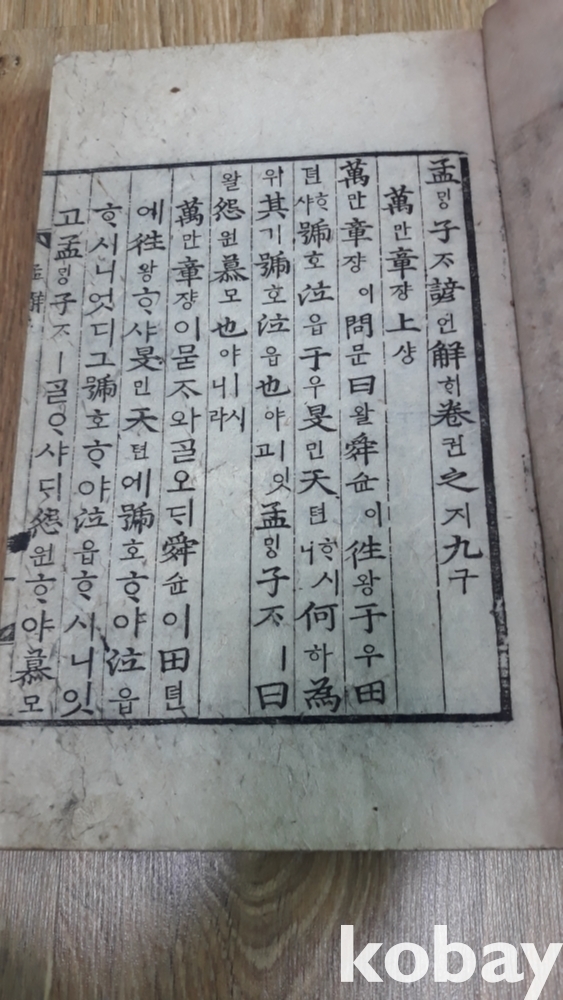 孟ᄆᆡᇰ子ᄌᆞ諺언解ᄒᆡ卷권之지九구
萬만章쟝上샹
萬만章쟝이問문曰왈舜슌이徃왕于우田
뎐ᄒᆞ샤號호泣읍于우旻민天텬ᄒᆞ시니何하爲
위其기號호泣읍也야ㅣ잇고孟ᄆᆡᇰ子ᄌᆞㅣ曰
왈怨원慕모也야ㅣ시니라
萬만章쟝이묻ᄌᆞ와ᄀᆞᆯ오ᄃᆡ舜슌이田뎐
에徃왕ᄒᆞ샤旻민天텬에號호ᄒᆞ야泣읍
ᄒᆞ시니엇디그號호ᄒᆞ야泣읍ᄒᆞ시니잇
고孟ᄆᆡᇰ子ᄌᆞㅣᄀᆞᆯᄋᆞ샤ᄃᆡ怨원ᄒᆞ야慕모
kobay